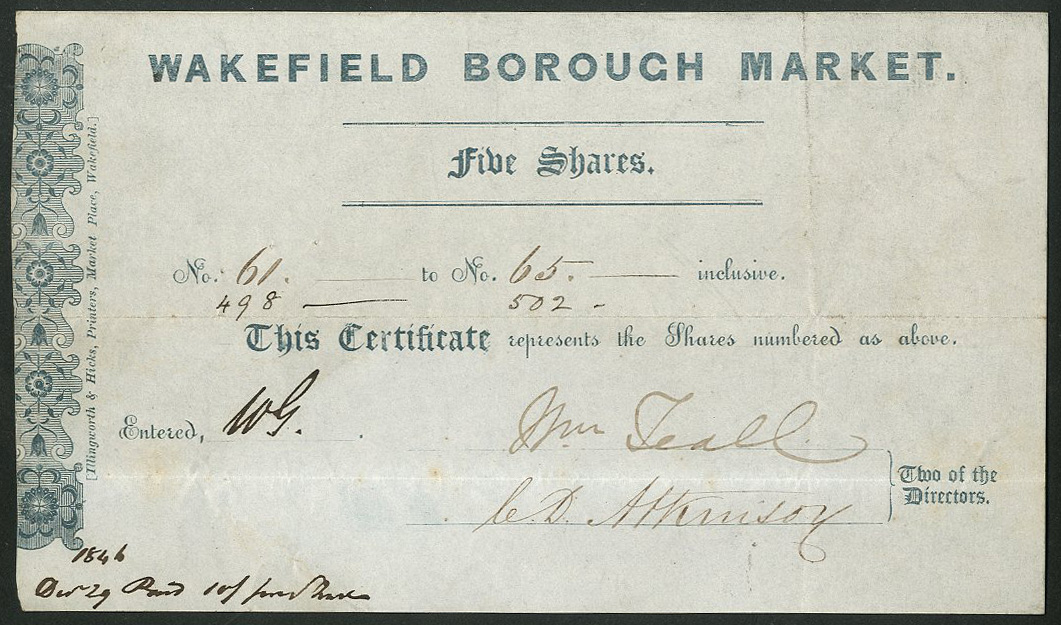 WAKEFIELD BOROUGH MARKET.
Five Shares.
No. 61. to No. 65. inclusive.
498 — 502 -
This Certificate represents the Shares numbered as above.
Entered, WG.
Wm Teall
C D. Atkinson
Two of the
Directors.
[Illingworth & Hicks, Printers, Market Place, Wakefield.]
1846
Decr 29 Paid 10/